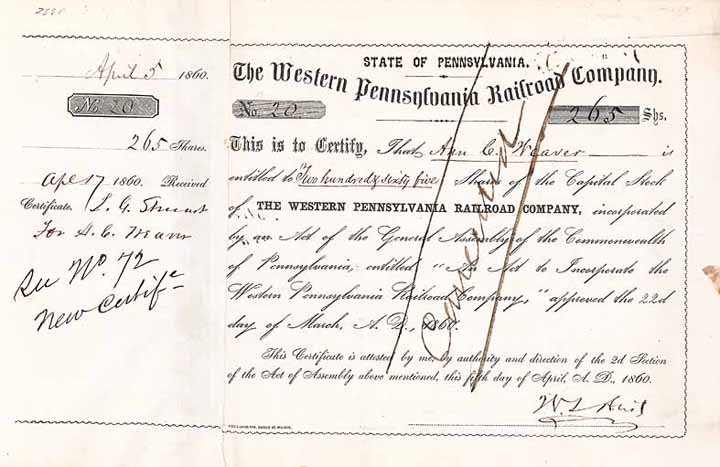 April 5 1860.
No 20
265 Shares.
Apl 17 1860. Received
Certificate.
For
See No. 72
New Certife
STATE OF PENNSYLVANIA.
The Western Pennsylvania Railroad Company.
No 20 265 Shs.
This is to Certify, That Ann C. Weaver is
entitled to Two hundred & sixty five Shares of the Capital Stock
of THE WESTERN PENNSYLVANIA RAILROAD COMPANY, incorporated
by an Act of the General Assembly of the Commonwealth
of Pennsylvania, entitled "An Act to Incorporate the
Western Pennsylvania Railroad Company," approved the 22d
day of March, A. D., 1860.
This Certificate is attested by me, by authority and direction of the 2d Section
of the Act of Assembly above mentioned, this fifth day of April, A. D., 1860.
Cancelled